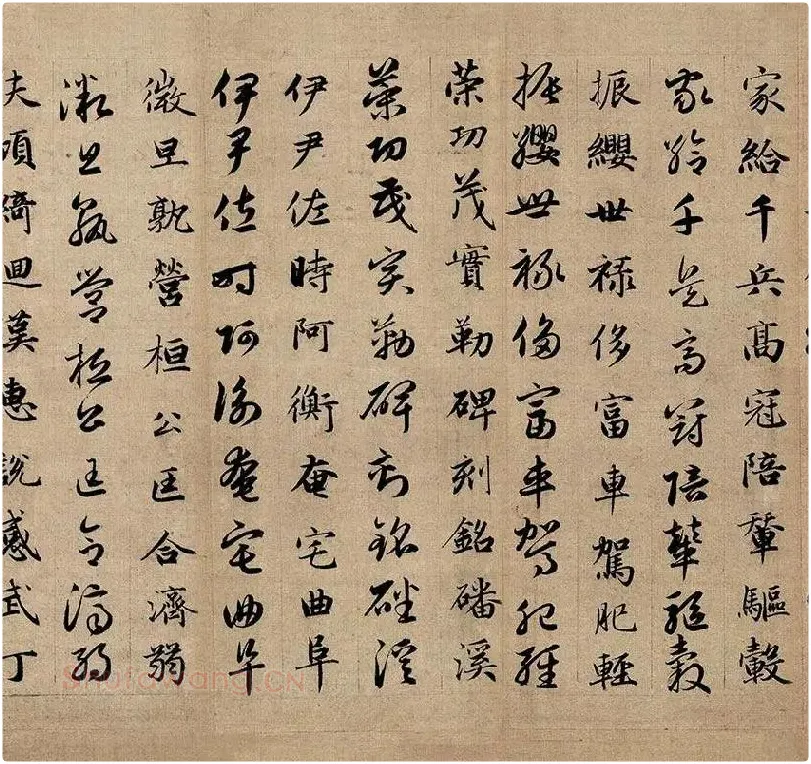 家給千兵高冠陪輦驅轂
家給千兵高冠陪輦驅轂
振纓世祿侈富車駕肥輕
振纓世祿侈富車駕肥輕
策功茂實勒碑刻銘磻溪
策功茂實勒碑刻銘磻溪
伊尹佐時阿衡奄宅曲阜
伊尹佐時阿衡奄宅曲阜
微旦孰營桓公匡合濟弱
微旦孰營桓公匡合濟弱
扶傾綺迴漢惠說感武丁
Shufawang.CN